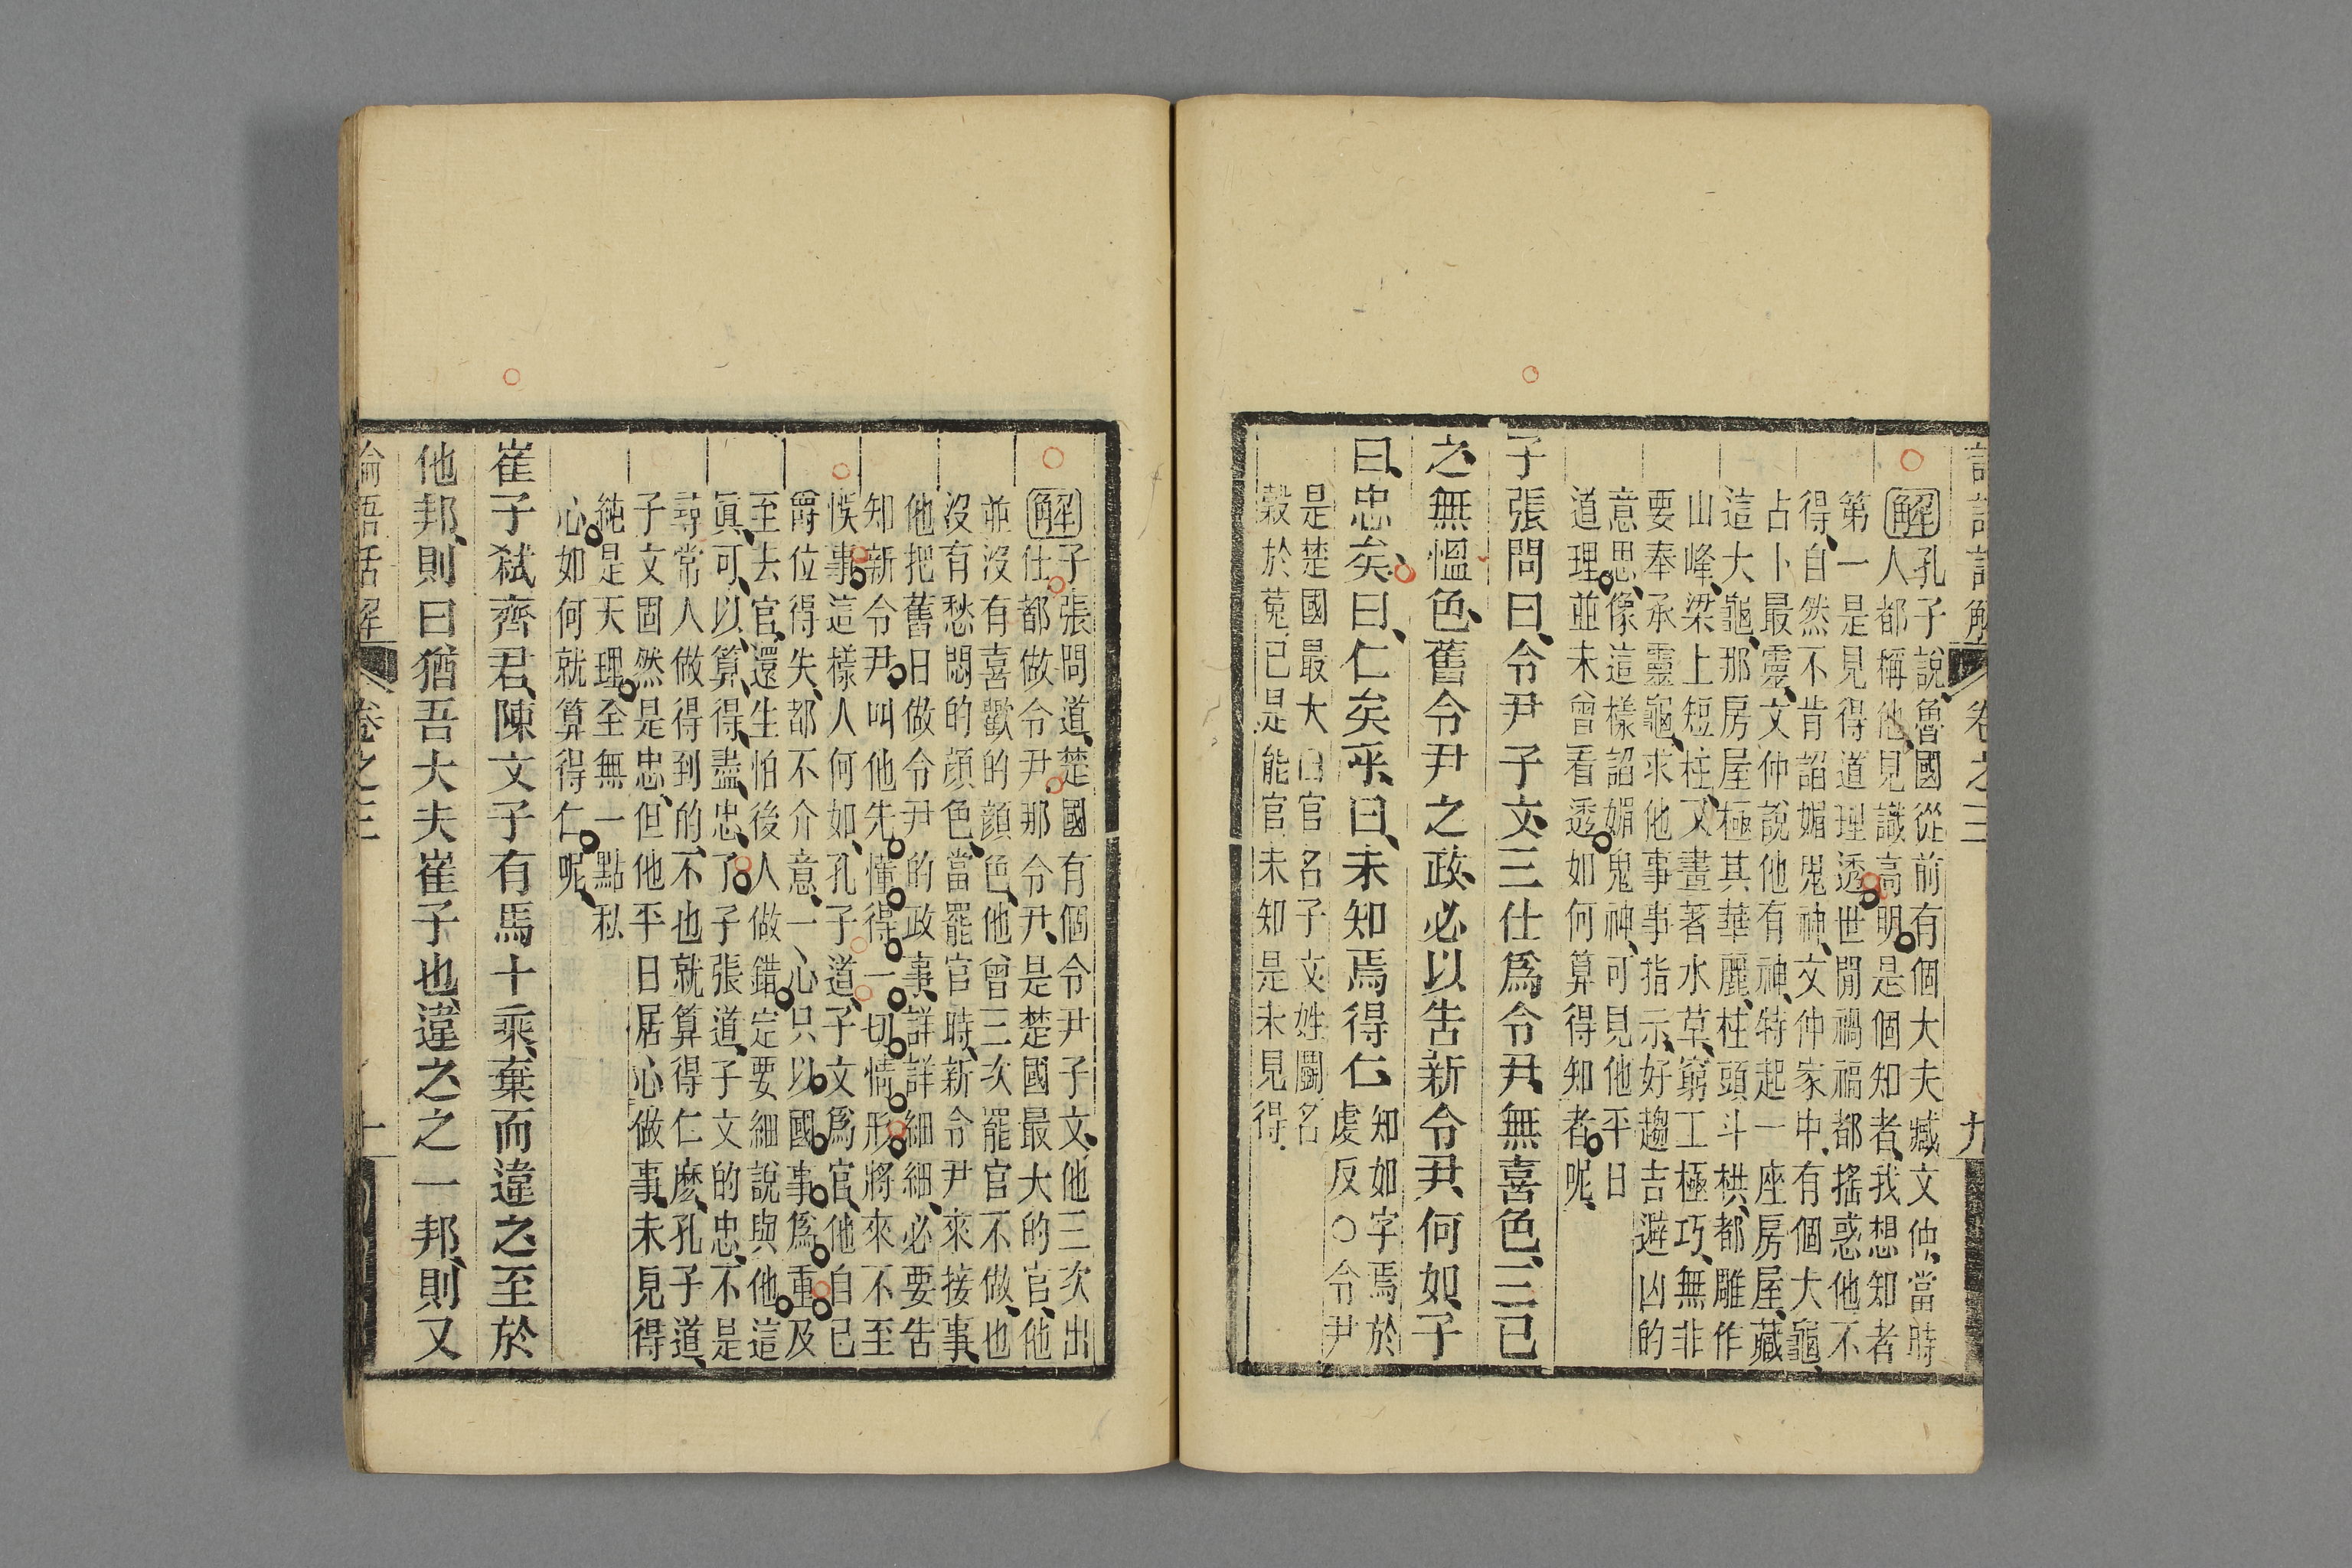 卷之三
九
解 孔子說、魯國從前有個大夫臧文仲、當時
人都稱他、見識高明、是個知者、我想知者
第一是見得道理透、世間禍福都搖惑他不
得、自然不肯諂媚鬼神、文仲家中、有個大龜、
占卜最靈、文仲說他有神、特起一座房屋、藏
這大龜、那房屋極其華麗、柱頭斗栱、都雕作
山峰、梁上短柱、又畫著水草、窮工極巧、無非
要奉承靈龜、求他事事指示、好趨吉避凶的
意思、像這樣諂媚鬼神、可見他平日
道理並未曾看透、如何算得知者呢、
子張問曰、令尹子文、三仕爲令尹、無喜色、三已
之、無慍色、舊令尹之政、必以告新令尹、何如、子
曰、忠矣、曰、仁矣乎、曰、未知、焉得仁、
知如字焉於
虔反〇令尹
是楚國最大官名子文姓鬭名
穀於菟、已是能官、未知是未見得、
解 子張問道、楚國有個令尹子文、他三次出
仕、都做令尹、那令尹、是楚國最大的官、他
並沒有喜歡的顏色、他曾三次罷官不做、也
沒有愁悶的顏色、當罷官時、新令尹來接事、
他把舊日做令尹的政事、詳詳細細、必要告
知新令尹、叫他先懂得一切情形、將來不至
悞事、這樣人何如、孔子道、子文爲官、他自己
爵位得失、都不介意、一心只以國事爲重、及
至去官、還生怕後人做錯、定要細說與他、這
眞、可、以、算、得、盡、忠、了、子張道、子文的忠、不是
尋常人做得到的、不也就算得仁麽、孔子道、
子文固然是忠、但他平日居心做事、未見得
純是天理、至無一點私
心、如何就算得仁呢、
崔子弒齊君、陳文子有馬十乘、棄而違之、至於
他邦、則曰猶吾大夫崔子也、違之、之一邦、則又
論語話解
卷之三
十